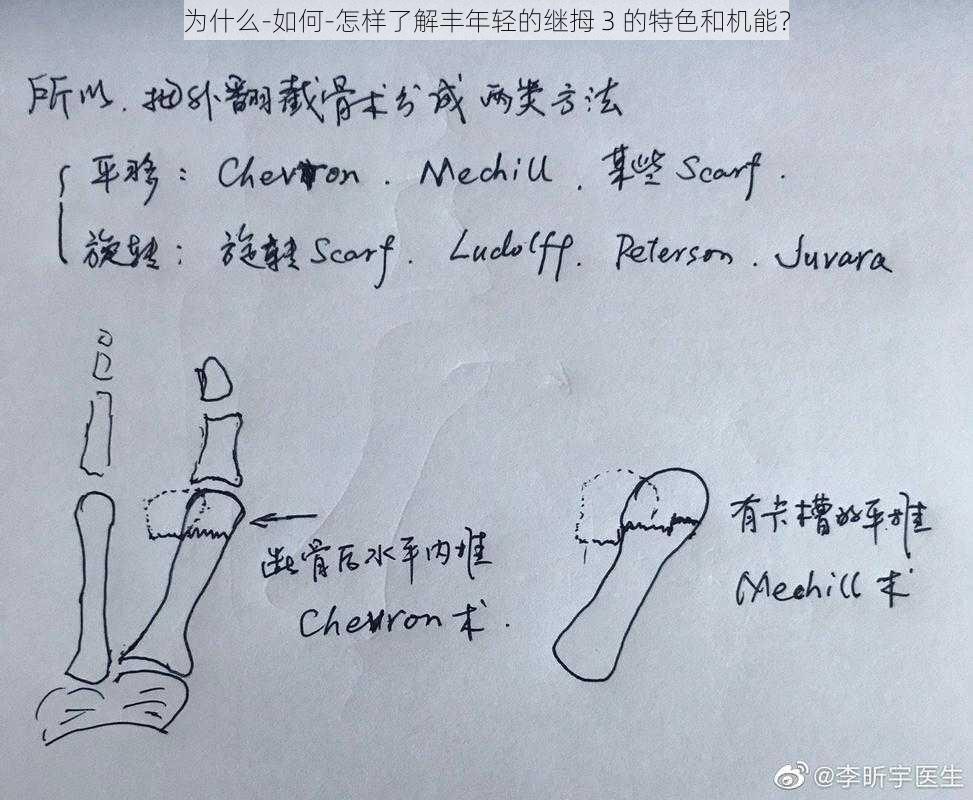 为什么-如何-怎样了解丰年轻的继拇 3 的特色和机能?
所以，拇外翻截骨术分成两类方法
平移：Chevron . Mechill . 某些 Scarf .
旋转：旋转 Scarf . Ludolff . Peterson . Juvara
截骨后水平内推
Chevron 术 .
有卡槽的平推
Mechill 术
@李昕宇医生